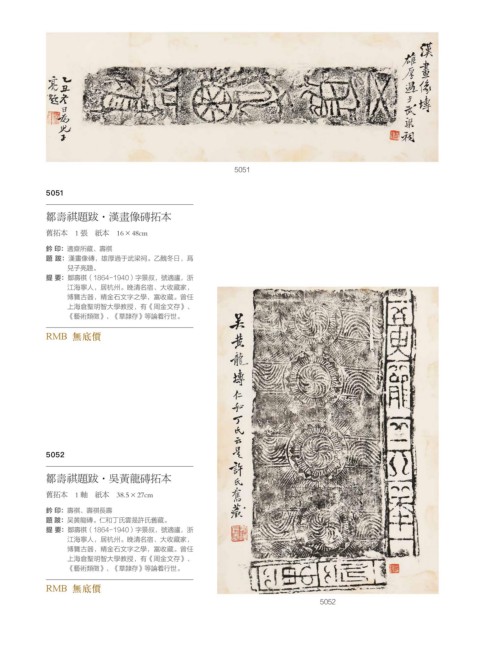 漢畫像磚
雄厚過于武梁祠
乙丑冬日為兒子
亮題
5051
5051
鄒壽祺題跋・漢畫像磚拓本
舊拓本　1 張　紙本　16×48cm
鈐 印：適廬所藏、壽祺
題 跋：漢畫像磚，雄厚過于武梁祠。乙醜冬日，爲
兒子亮題。
提 要：鄒壽祺（1864-1940）字景叔，號適廬，浙
江海寧人，居杭州。晚清名宿，大收藏家，
博覽古器，精金石文字之學，富收藏。曾任
上海倉聖明智大學教授，有《周金文存》、
《藝術類徵》、《草隸存》等論着行世。
RMB 無底價
吳黃龍磚 仁和丁氏云是許氏舊藏
5052
鄒壽祺題跋・吳黃龍磚拓本
舊拓本　1 軸　紙本　38.5×27cm
鈐 印：壽祺、壽祺長壽
題 跋：吳黃龍磚。仁和丁氏雲是許氏舊藏。
提 要：鄒壽祺（1864-1940）字景叔，號適廬，浙
江海寧人，居杭州。晚清名宿，大收藏家，
博覽古器，精金石文字之學，富收藏。曾任
上海倉聖明智大學教授，有《周金文存》、
《藝術類徵》、《草隸存》等論着行世。
RMB 無底價
5052